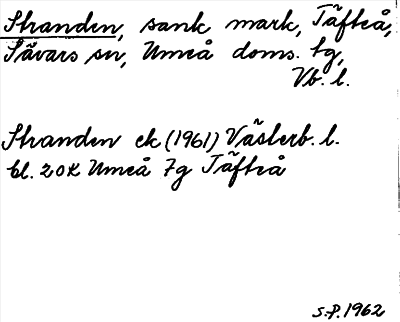 Stranden, sank mark, Täfteå,
Sävars sn, Umeå doms. tg,
Vb. l.
Stranden ek (1961) Västerb. l.
bl. 20K Umeå 7g Täfteå
S.P. 1962